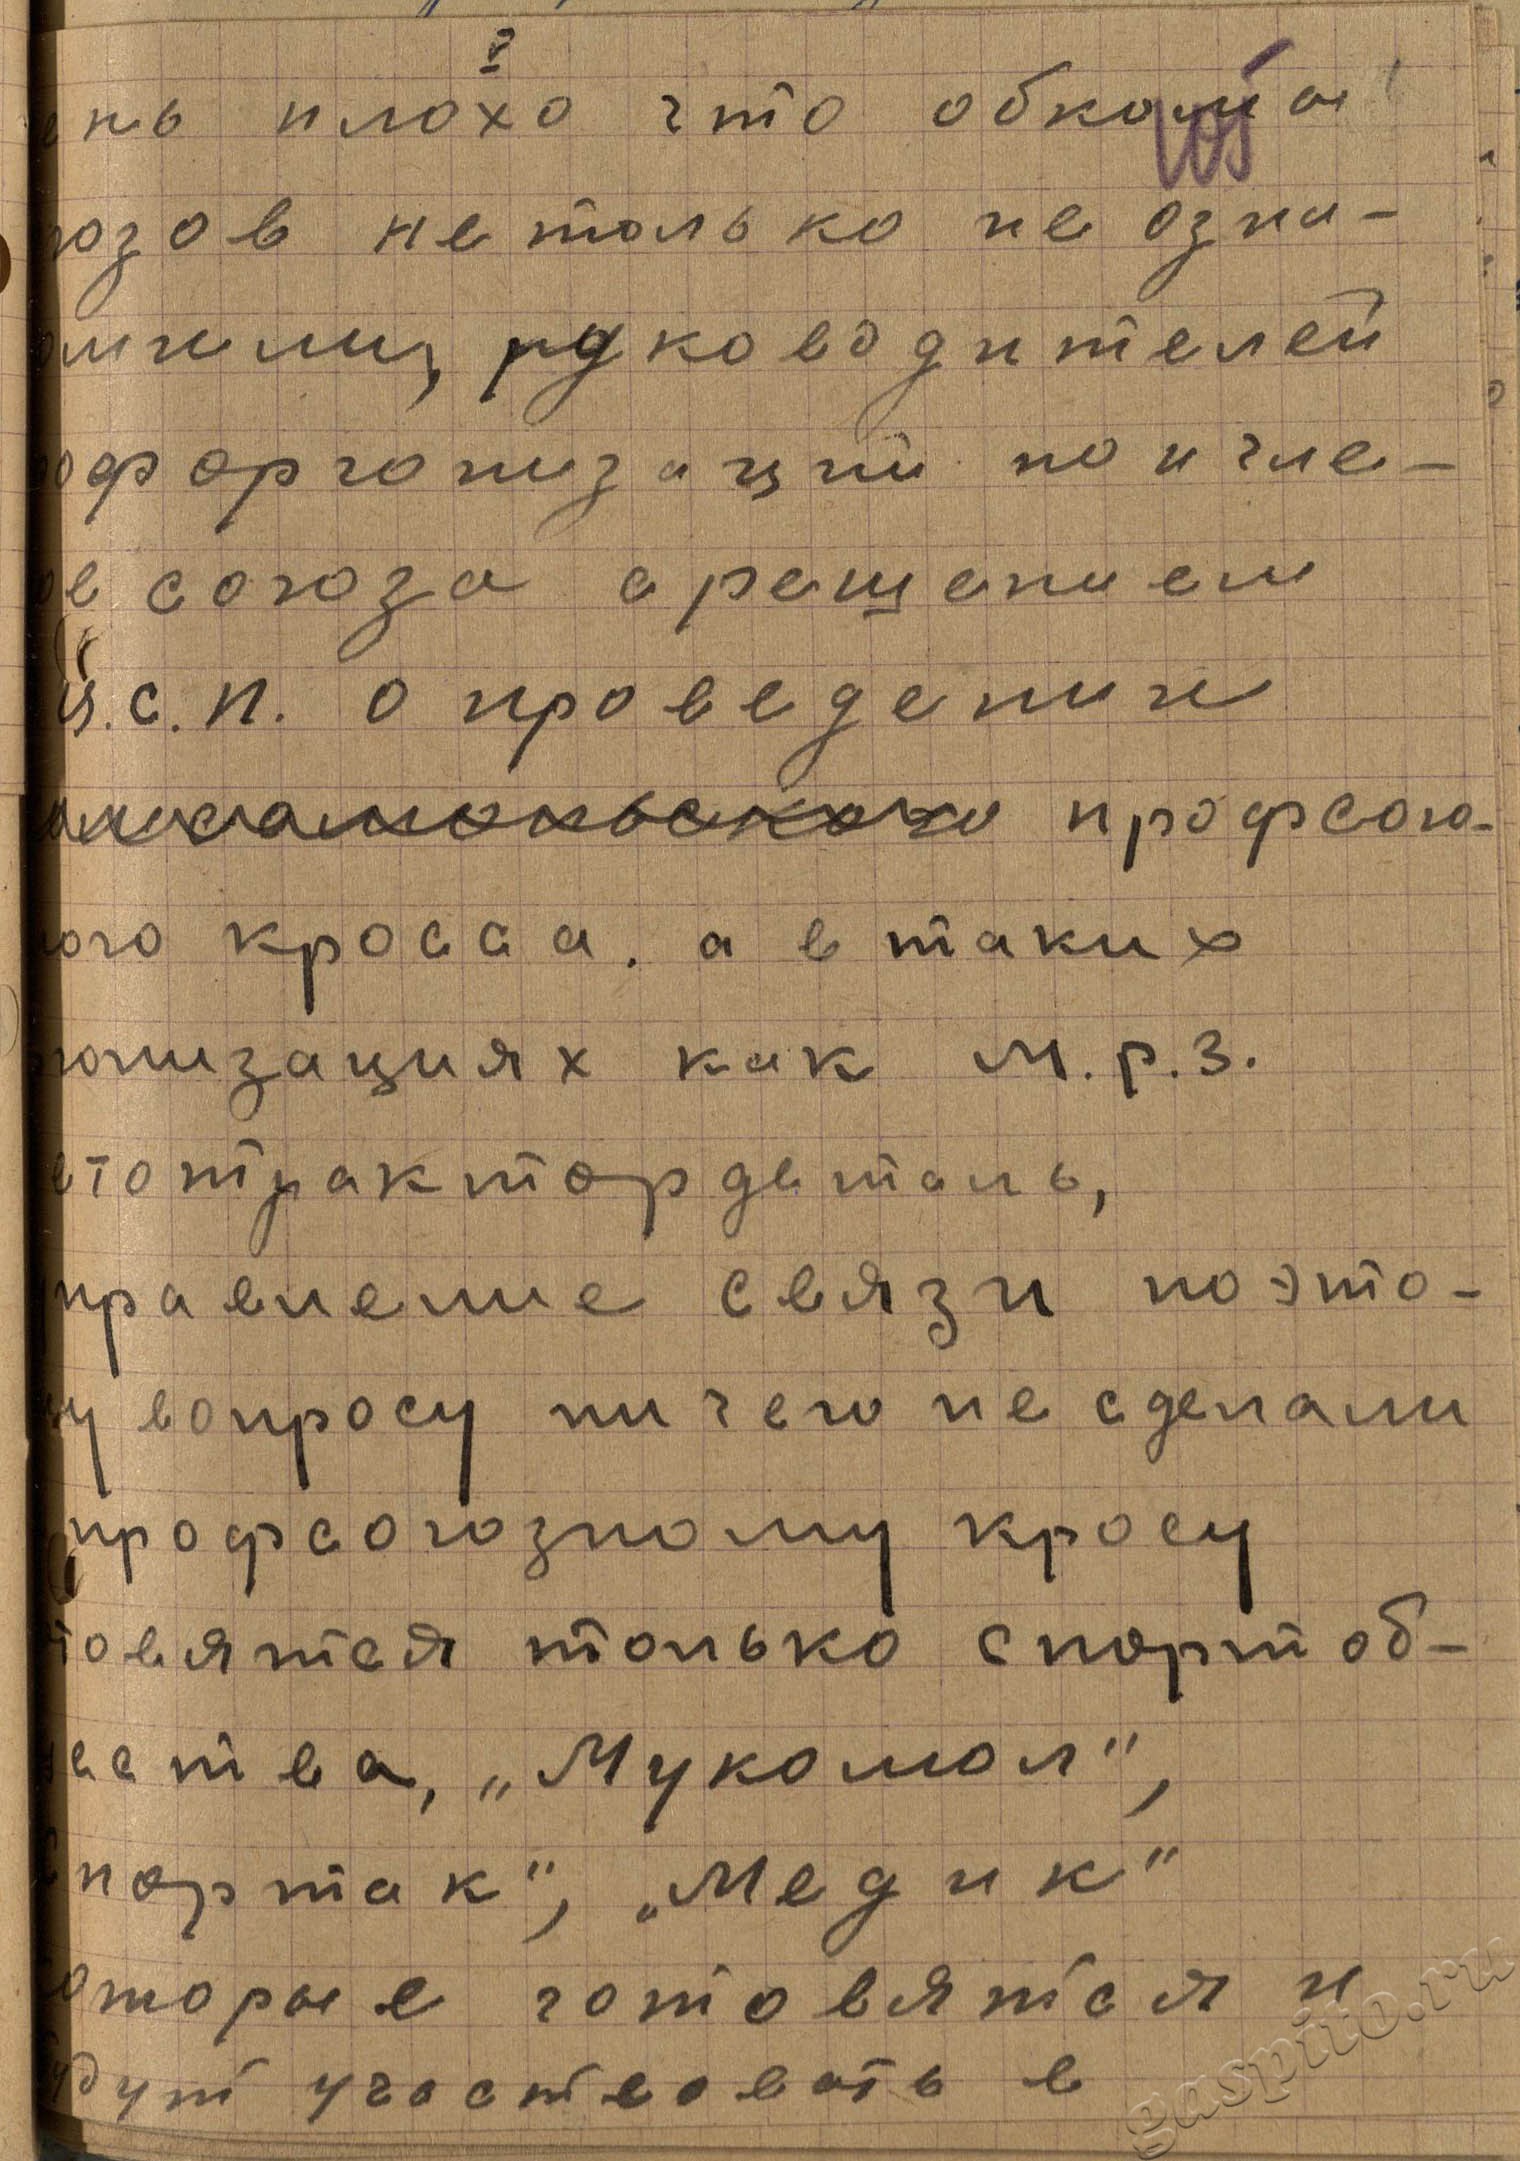 8
ень плохо что обкомы
юзов нетолько не озна-
омили, руководителей
офорганизаций по и чле-
ов союза с решением
ц.с.п. о проведении
профсою-
ого кросса. а в таких
низациях как м.р.з.
втотрактордеталь,
правление связи поэто-
му вопросу ничего не сделали
профсоюзному кросу
товятся только спортоб-
ества, „Мукомол",
партак", „Медик"
оторые готовятся и
удут участвовать в
gaspito.ru